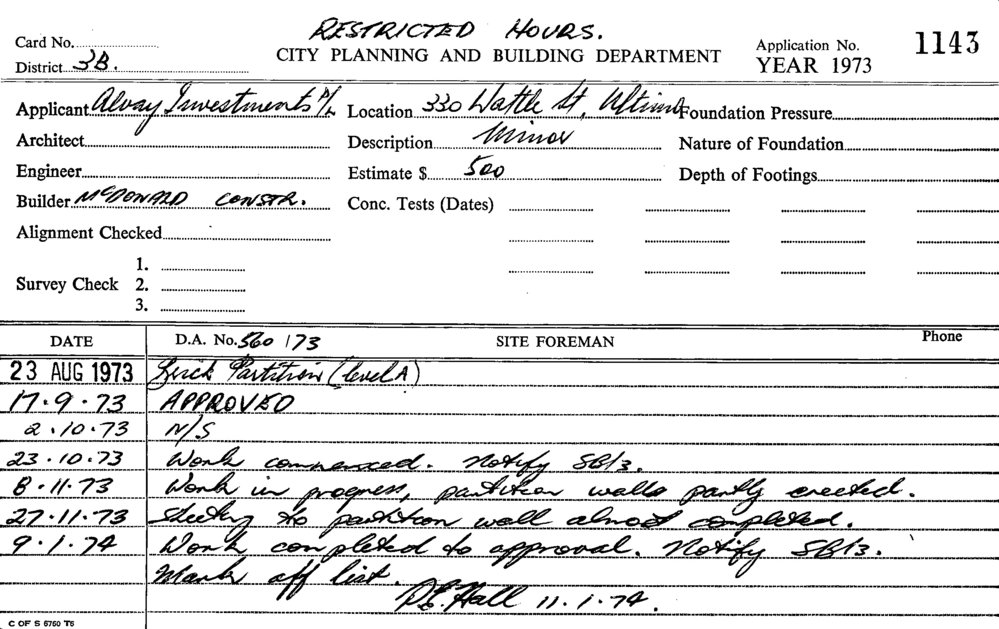 RESTRICTED HOURS.
Card No.
CITY PLANNING AND BUILDING DEPARTMENT
Application No. 1143
District 3B.
YEAR 1973
Applicant Alvay Investments P/L Location 330 Wattle St, Ultimo Foundation Pressure
Architect Description Minor Nature of Foundation
Engineer Estimate $ 500 Depth of Footings
Builder McDONALD CONSTR. Conc. Tests (Dates)
Alignment Checked
1.
Survey Check 2.
3.
DATE D.A. No. 560/73 SITE FOREMAN Phone
23 AUG 1973 Brick Partition (level A)
17.9.73 APPROVED
2.10.73 N/S
23.10.73 Work commenced. Notify SB/3.
8.11.73 Work in progress, partition walls partly erected.
27.11.73 Sheeting to partition wall almost completed.
9.1.74 Work completed to approval. Notify SB/3.
Mark off list.
Hall 11.1.74.
C OF S 5760 T5